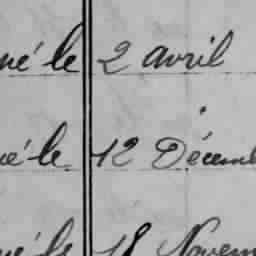 né le 2 avril
né le 12 Décemb
né le 18 Novem